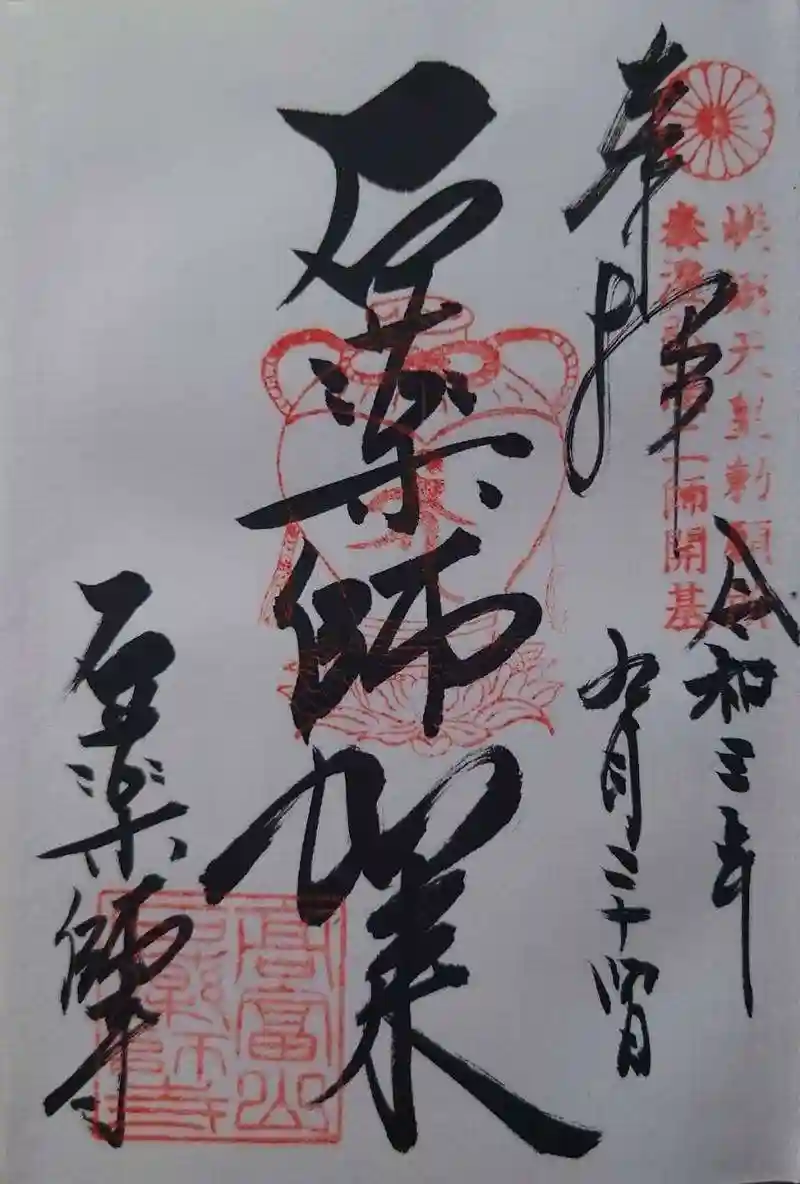 奉拝
嵯峨天皇勅願所
泰澄 一隅開基
令和三年
九月二十四日
石薬師如来
石薬師寺
高富山
石薬師寺